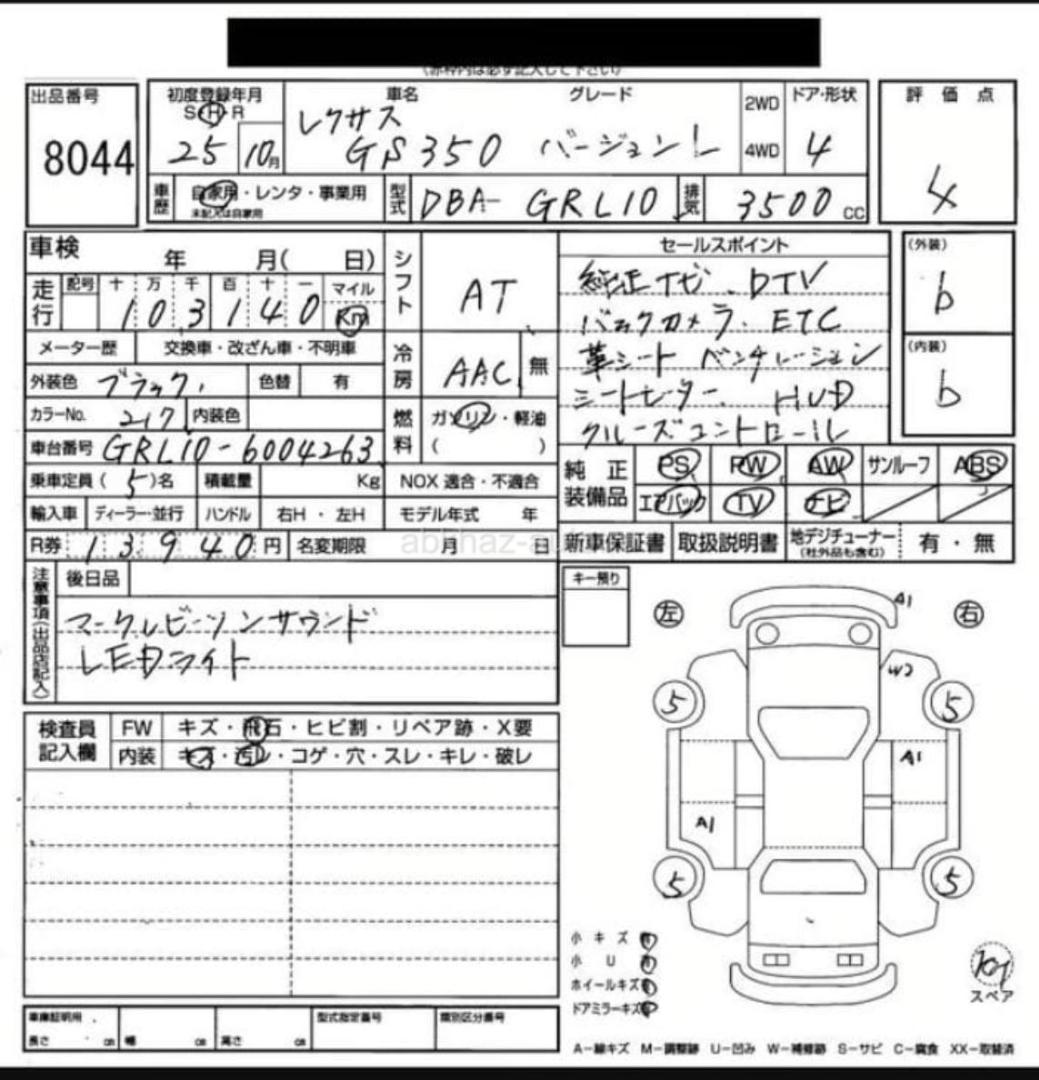 (赤枠内は必ず記入して下さい)
出品番号
8044
初度登録年月
S・H・R
25 10月
車名 グレード
レクサス
GS350 バージョンL
2WD
4WD
ドア・形状
4
評価点
4
車歴
自家用・レンタ・事業用
未記入は自家用
型式
DBA-GRL10
排気
3500cc
車検
年 月( 日)
走行
記号 十 万 千 百 十 一 マイル
103140 Km
シフト
AT
メーター歴 交換車・改ざん車・不明車
冷房
AAC 無
外装色 ブラック 色替 有
カラーNo. 217 内装色
燃料
ガソリン・軽油
( )
車台番号 GRL10-6004263
乗車定員(5)名 積載量 Kg NOX 適合・不適合
輸入車 ディーラー・並行 ハンドル 右H・左H モデル年式 年
R券 13940円 名変期限 月 日
セールスポイント
純正ナビ. DTV
バックカメラ. ETC
革シート ベンチレーション
シートヒーター. HUD
クルーズコントロール
(外装)
b
(内装)
b
純正装備品
PS PW AW サンルーフ ABS
エアバック TV ナビ
新車保証書 取扱説明書 地デジチューナー(社外品も含む) 有・無
注意事項(出品店記入)
後日品
マークレビーソンサウンド
LEDライト
キー預り
左
右
A1
W2
5
5
A1
A1
5
5
検査員記入欄
FW キズ・飛石・ヒビ割・リペア跡・X要
内装 キズ・汚レ・コゲ・穴・スレ・キレ・破レ
小キズ有
小U有
ホイールキズ有
ドアミラーキズ有
スペア
車庫証明用
長さ cm 幅 cm 高さ cm
型式指定番号
類別区分番号
A-線キズ M-調整跡 U-凹み W-補修跡 S-サビ C-腐食 XX-取替済